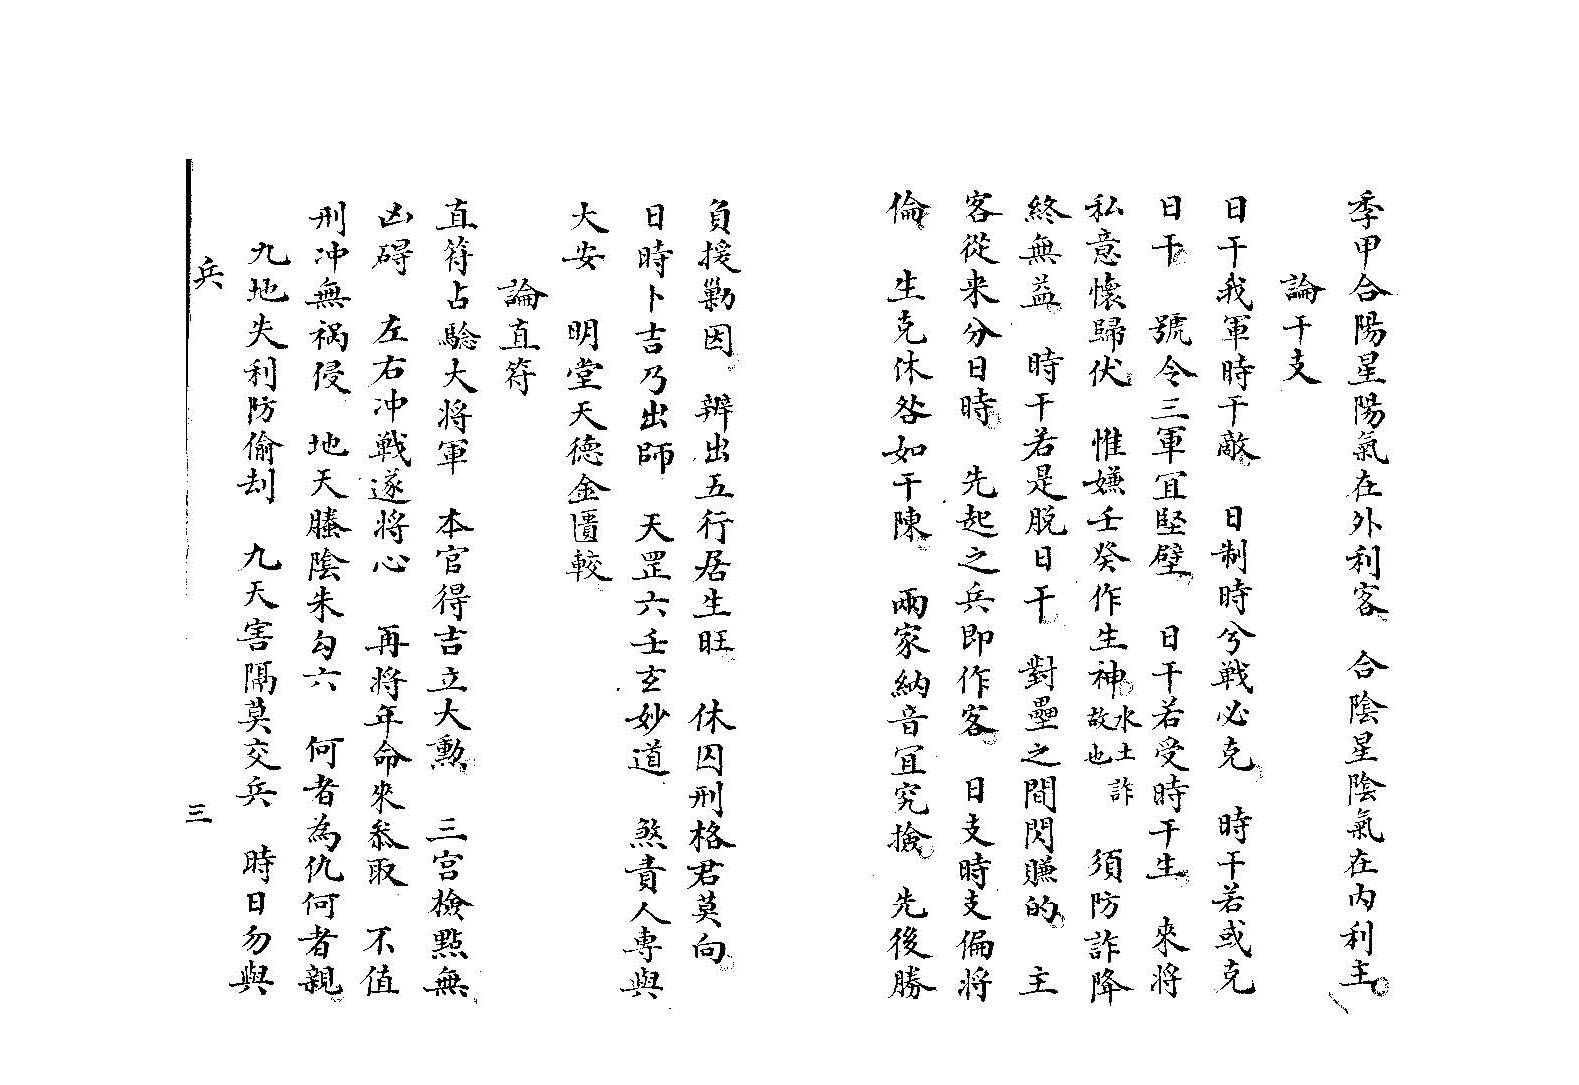 季甲合陽星陽氣在外利客 合陰星陰氣在內利主
論干支
日干我軍時干敵 日制時兮戰必克 時干若或克
日干 號令三軍宜堅壁 日干若受時干生 來將
私意懷歸伏 惟嫌壬癸作生神水土詐故也 須防詐降
終無益 時干若是脫日干 對壘之間閃賺的 主
客從來分日時 先起之兵即作客 日支時支偏將
倫 生克休咎如干陳 兩家納音宜究撿 先後勝
負援勦因 辨出五行居生旺 休囚刑格君莫向
日時卜吉乃出師 天罡六壬玄妙道 煞責人專與
大安 明堂天德金匱較
論直符
直符占驗大將軍 本官得吉立大勲 三宮檢點無
凶碍 左右冲戰遂將心 再將年命來叅取 不值
刑冲無禍侵 地天螣陰朱勾六 何者為仇何者親
九地失利防偷刦 九天害隔莫交兵 時日勿與
兵 三